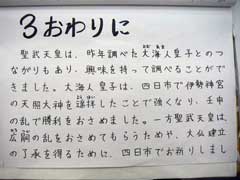 3おわりに
聖武天皇は、昨年調べた大海人皇子とのつ
ながりもあり、興味を持って調べることがで
きました。大海人皇子は、四日市で伊勢神宮
の天照大神を遥拝したことで強くなり、壬申
の乱で勝利をおさめました。一方聖武天皇は、
広嗣の乱をおさめてもらうためや、大仏建立
の了承を得るために、四日市でお祈りしまし